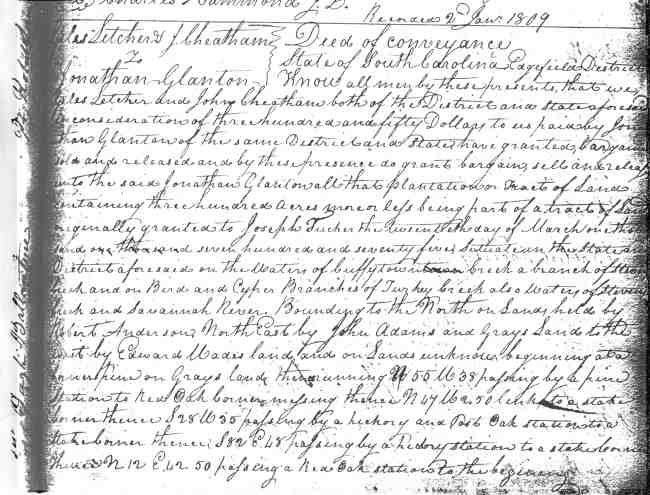 Charles Hammond J. P.
Recorded 2d Jany 1809
Letcher & J. Cheatham Deed of conveyance
To State of South Carolina, Edgefield District
Jonathan Glanton Know all men by these presents, that we,
Letcher and John Cheatham both of the District and state aforesaid
consideration of three hundred and fifty Dollars to us paid by Jona
than Glanton of the same District and State have granted, bargain
sold and released and by these presence do grant bargain, sell and releas
unto the said Jonathan Glanton all that plantation or Tract of Land
containing three hundred acres more or less being part of a tract of Land
originally granted to Joseph Tucker the twentieth day of March one thou
sand one thousand seven hundred and seventy five, Situate in the State and
District aforesaid on the Waters of Cuffytown creek a branch of
creek and on Bird and Cyper Branches of Turkey Creek also Waters of Stevens
creek and Savannah River, Bounding to the North on Lands held by
Robert Anderson, North East by John Adams and Grays Land to the
East by Edward Wades land and on Lands unknow, beginning at a
corner pine on Grays land, thence running N 55 W 38 passing by a pine
station to Red Oak corner, missing thence N 47 W 2.50 links to a stake
corner thence S 28 W 35 passing by a hickory and Post Oak station to a
stake corner thence, S 82 E 48 passing by a hickory station to a stake corner
thence N 12 E 42 50 passing a Red Oak station to the begining